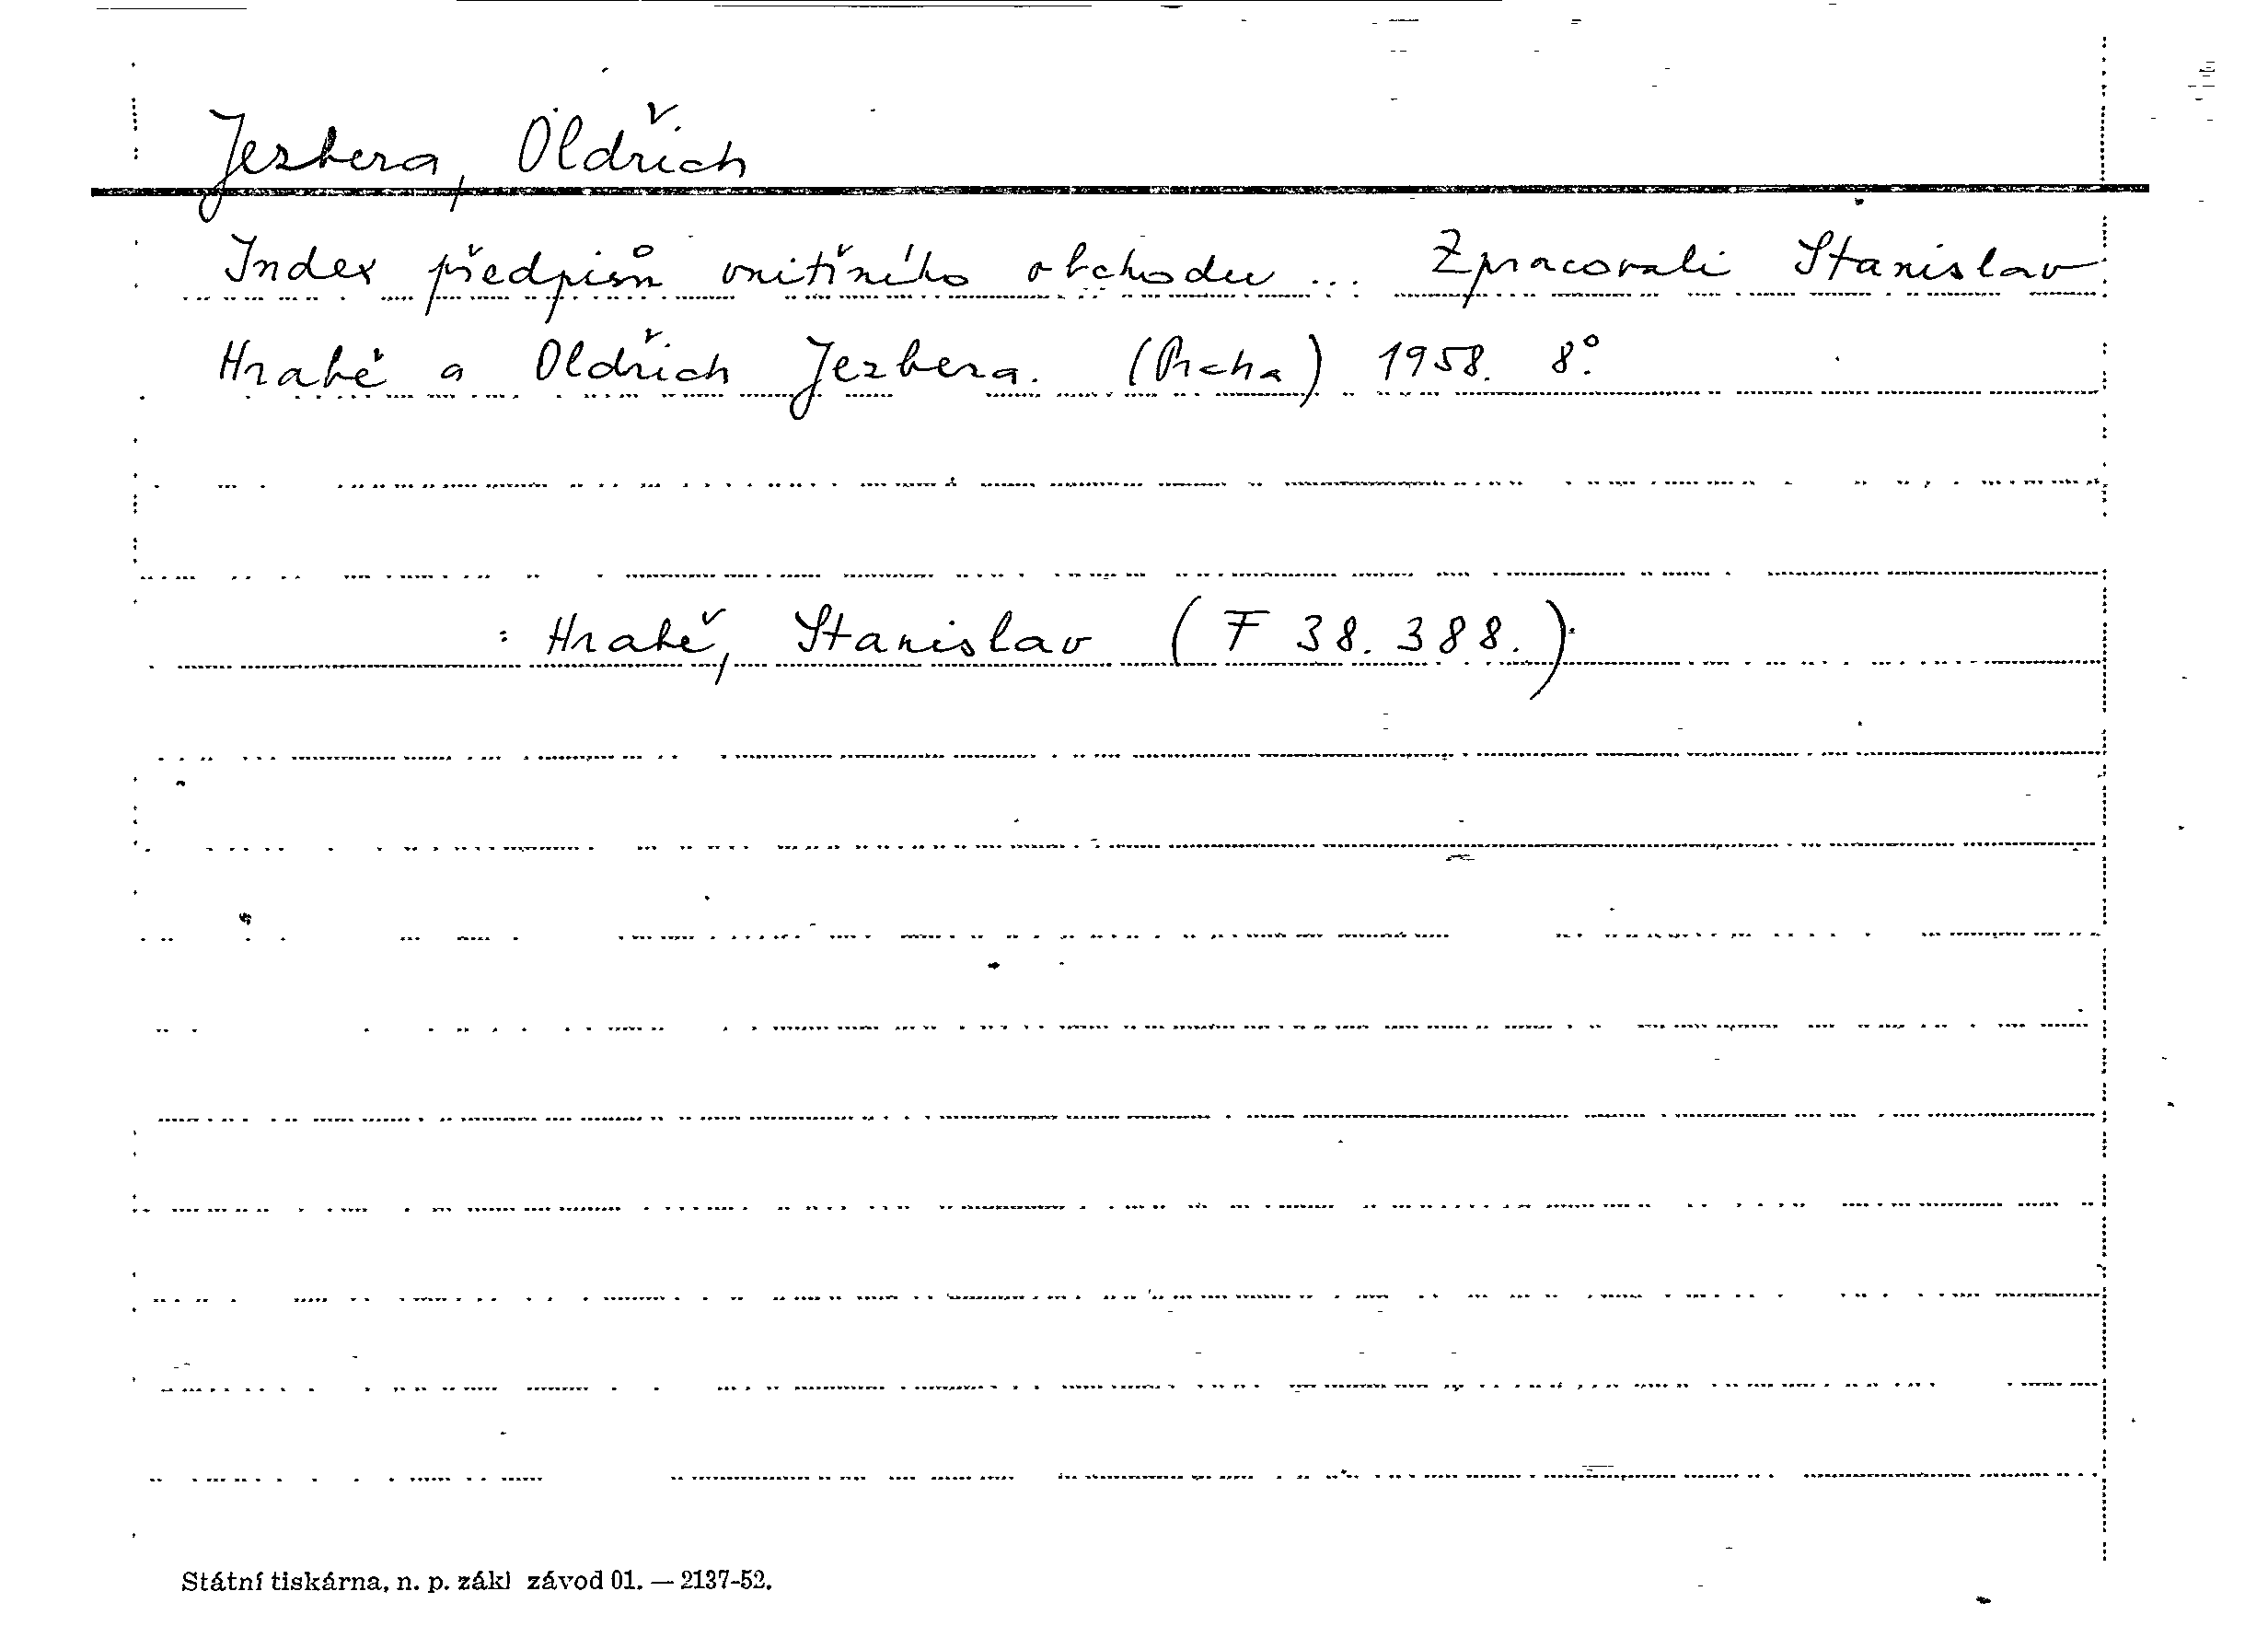 Jezbera, Oldřich
Index předpisů vnitřního obchodu ... Zpracovali Stanislav
Hrabě a Oldřich Jezbera. (Praha) 1958. 8°.
: Hrabě, Stanislav (F 38.388.)
Státní tiskárna, n. p. zákl závod 01. — 2137-52.